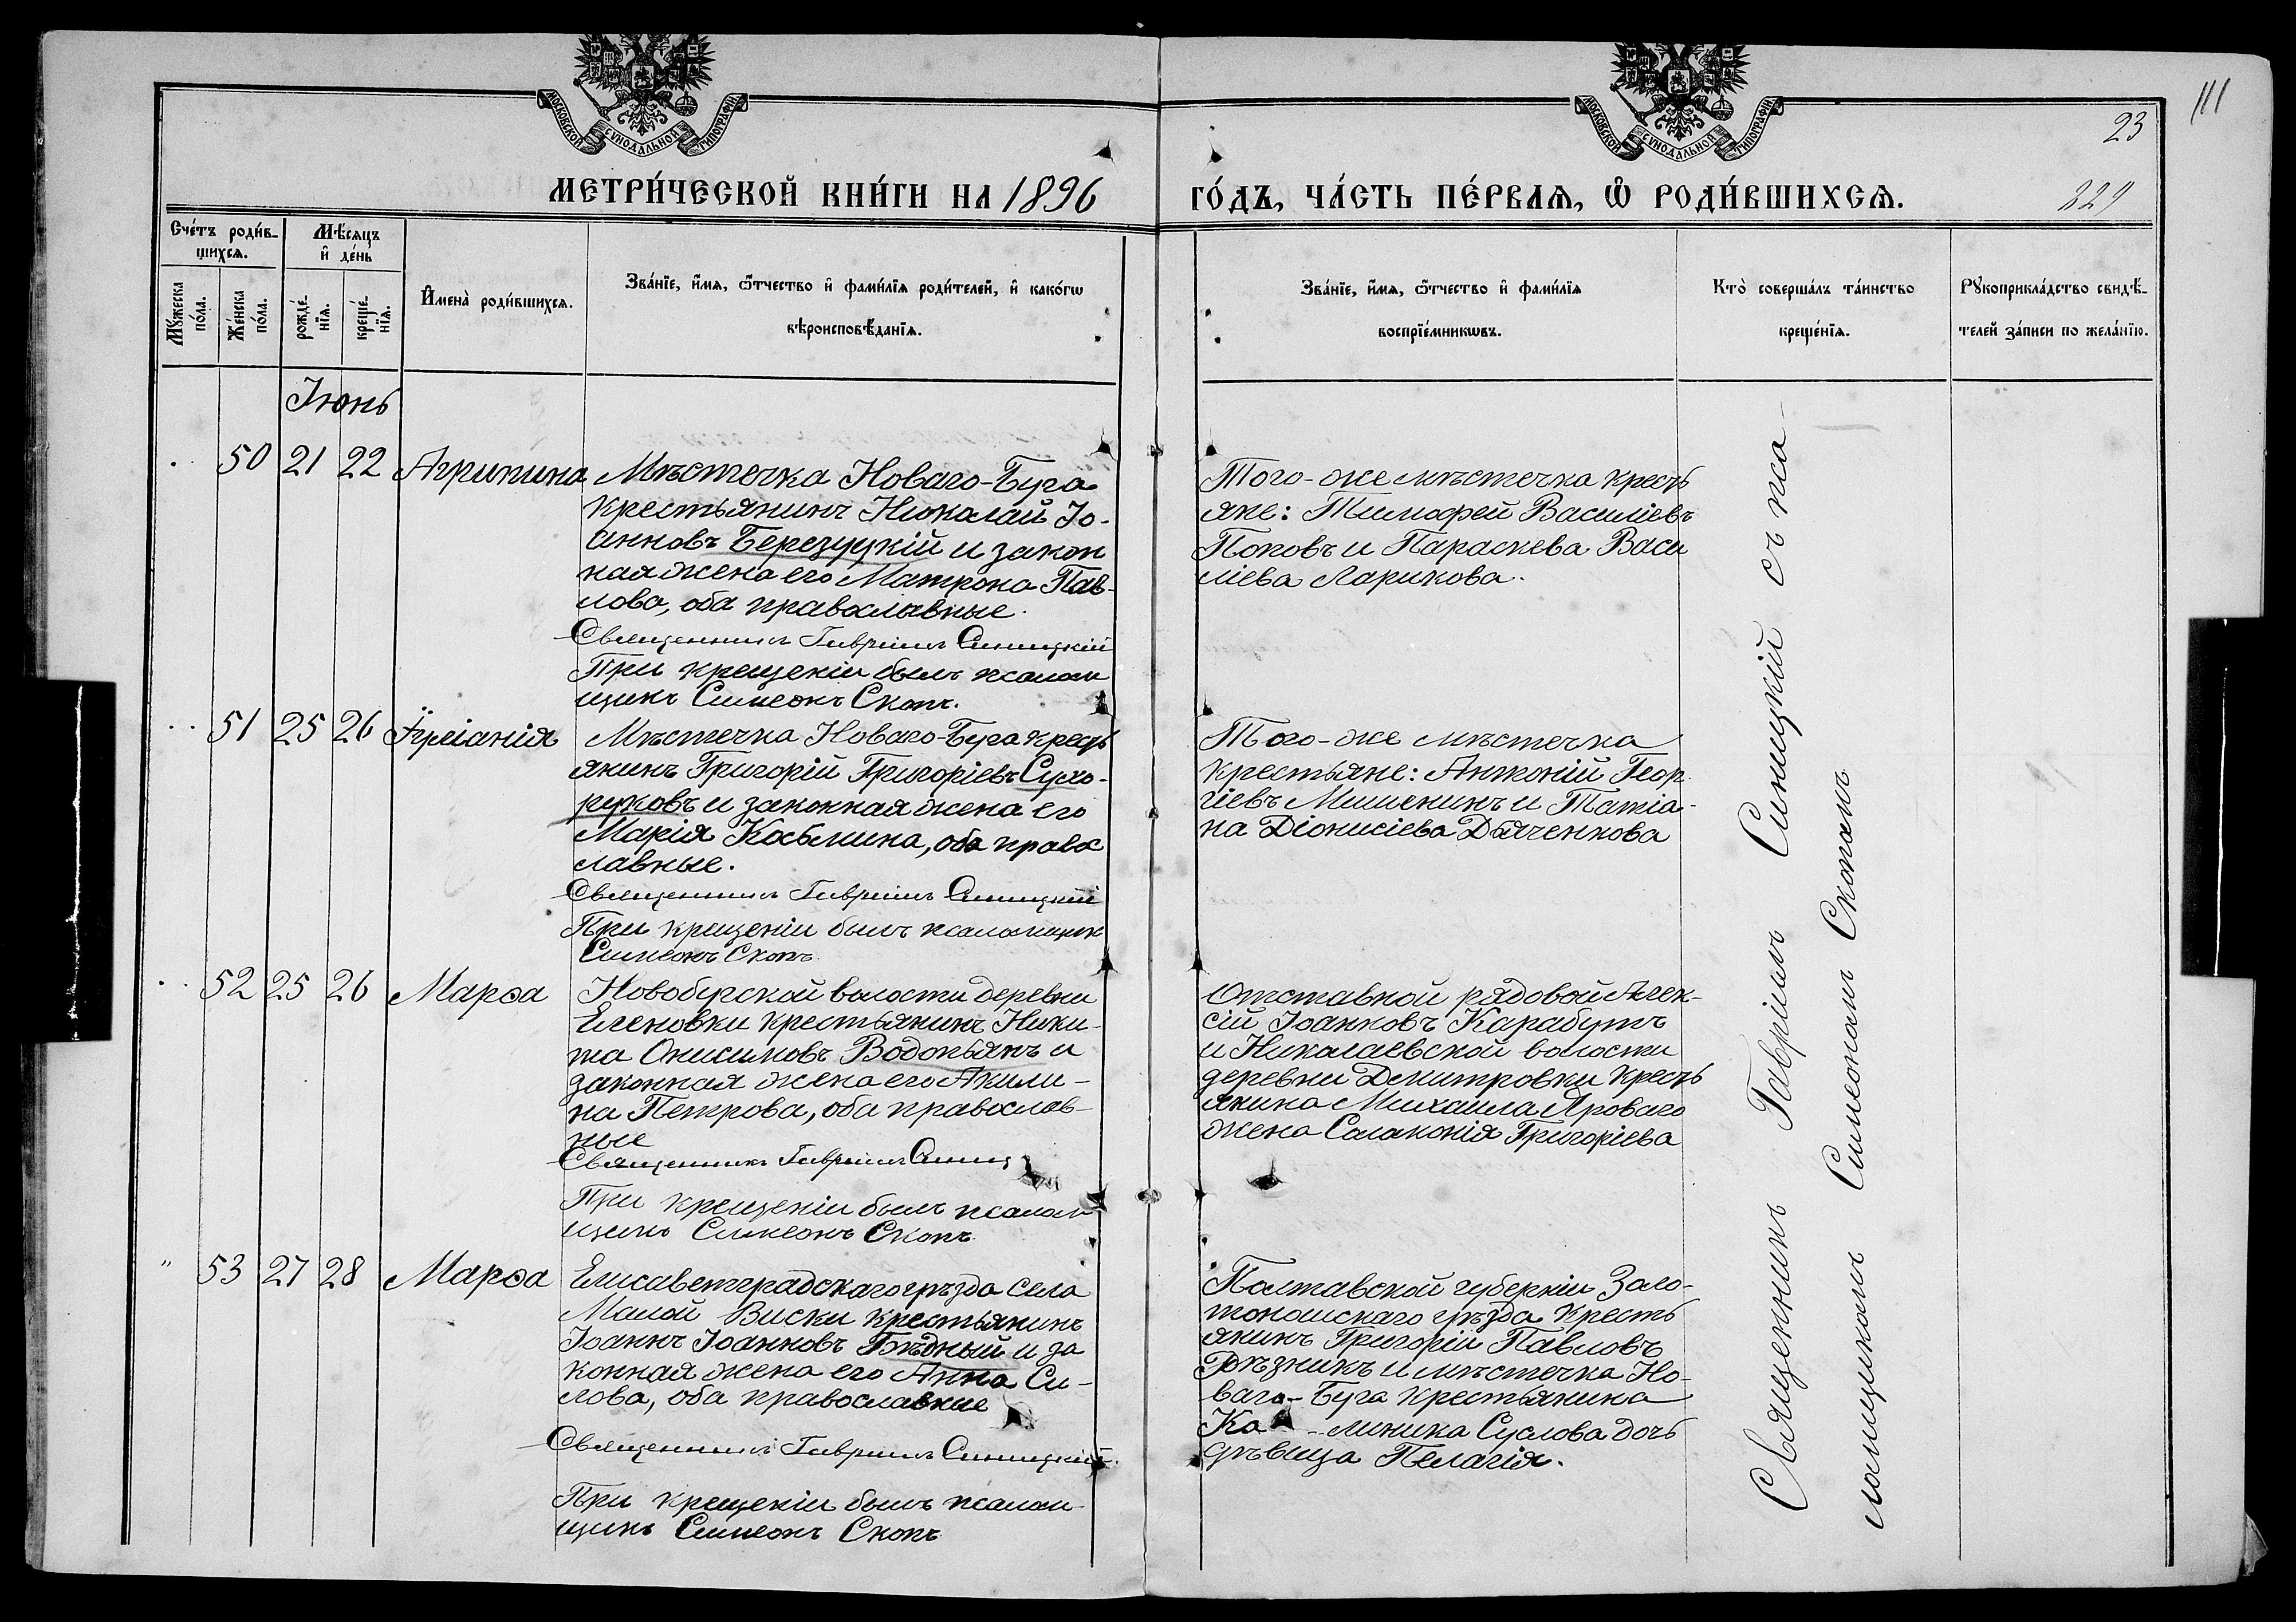 МОСКОВСКОЙ СУНОДАЛЬНОЙ ТИПОГРАФІИ
МОСКОВСКОЙ СУНОДАЛЬНОЙ ТИПОГРАФІИ
111
23
229
МЕТРИ́ЧЕСКОЙ КНИ́ГИ НА 1896 ГО́ДЪ, ЧА́СТЬ ПЕ́РВАѦ, Ѡ РОДИ́ВШИХСѦ.
Сче́тъ роди́в-
шихсѧ.
Мѣ́сѧцъ
и де́нь
Мꙋ́жеска
по́ла.
Же́нска
по́ла.
рожде́-
нїѧ.
креще́-
нїѧ.
Имена̀ роди́вшихсѧ.
Зва́нїе, и́мѧ, ѻ́тчество и фами́лїѧ роди́телей, и како́гѡ
вѣроисповѣ́данїѧ.
Зва́нїе, и́мѧ, ѻ́тчество и фами́лїѧ
воспрїе́мникѡвъ.
Кто̀ соверша́лъ та́инство
креще́нїѧ.
Рꙋкоприкла́дство свидѣ́-
телей за́писи по жела́нїю.
Іюнь
50 21 22 Агрипина
Мѣстечка Новаго-Буга
крестьянинъ Николай Іо-
анновъ Березуцкій и закон
ная жена его Матрона Пав-
лова, оба православные.
Священникъ Гавріилъ Синицкій
При крещеніи былъ псалом
щикъ Симеонъ Скопъ.
Того-же мѣстечка кресть
яне: Тимофей Василіевъ
Поповъ и Параскева Васи
ліева Ларикова.
51 25 26 Іуліанія
Мѣстечка Новаго-Буга крест
янинъ Григорій Григоріевъ Сухо-
руковъ и законная жена его
Марія Косьмина, оба правос
лавные.
Священникъ Гавріилъ Синицкій
При крещеніи былъ псаломщик
Симеонъ Скопъ.
Того-же мѣстечка
крестьяне: Антоній Геор
гіевъ Мишенинъ и Татіа-
на Діонисіева Дьяченкова
52 25 26 Марѳа
Новобугской волости деревни
Еленовки крестьянинъ Ники-
та Онисимовъ Водопьянъ и
законная жена его Акили-
на Петрова, оба православ-
ные
Священникъ Гавріилъ Синиц
При крещеніи былъ псалом
щикъ Симеонъ Скопъ
Отставной рядовой Алек-
сій Іоанновъ Карабутъ
и Николаевской волости
деревни Дмитровки кресть
янина Михаила Яроваго
жена Саломонія Григоріева
53 27 28 Марѳа
Елисаветградскаго уѣзда села
Малой Виски крестьянинъ
Іоаннъ Іоанновъ Бѣдный и за
конная жена его Анна Си-
лова, оба православные
Священникъ Гавріилъ Синицкій.
При крещеніи былъ псалом-
щикъ Симеонъ Скопъ
Полтавской губерніи Золо-
тоношскаго уѣзда кресть
янинъ Григорій Павловъ
Рѣзникъ и мѣстечка Но-
ваго-Буга крестьянина
Ка линика Суслова дочь
дѣвица Пелагія.
Священникъ Гавріилъ Синицкій съ пса-
ломщикомъ Симеономъ Скопомъ